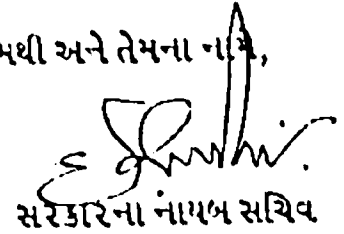 મથી અને તેમના નામે,
સરકારના નાયબ સચિવ